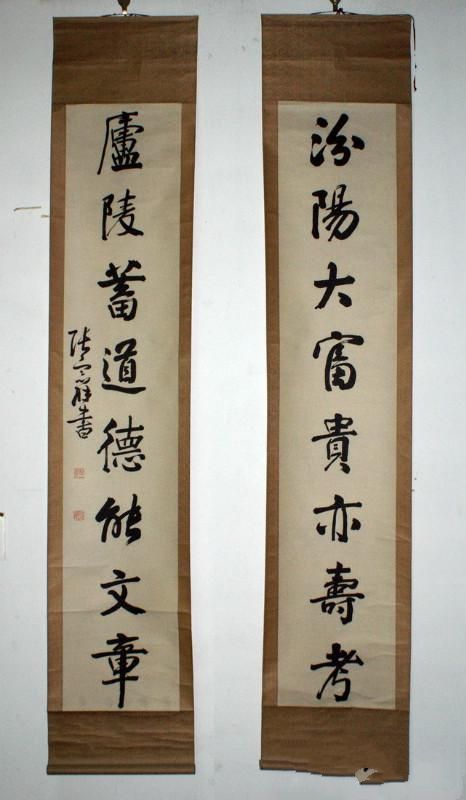 汾陽大富貴亦壽考
廬陵蓄道德能文章
書